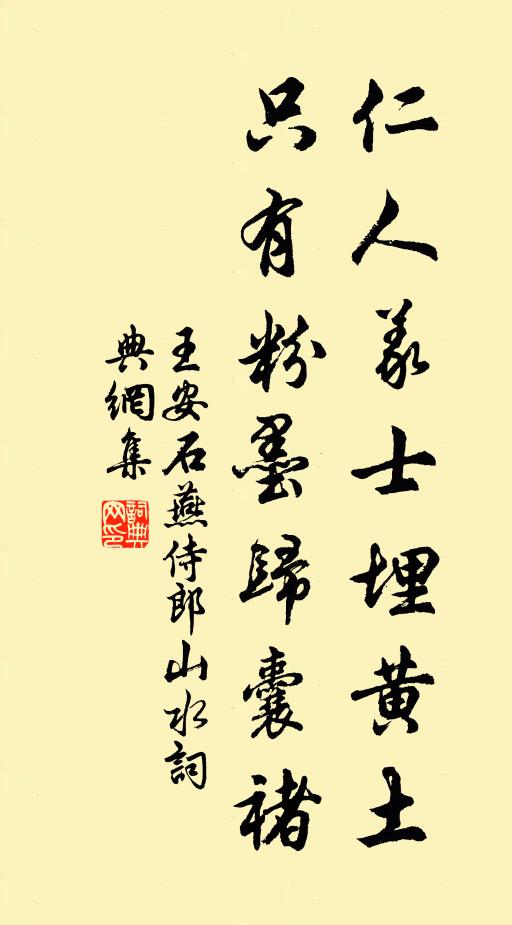 仁人義士埋黄土
只有粉墨歸囊褚
王安石燕侍郎山水詞
典網集
詞典
网印